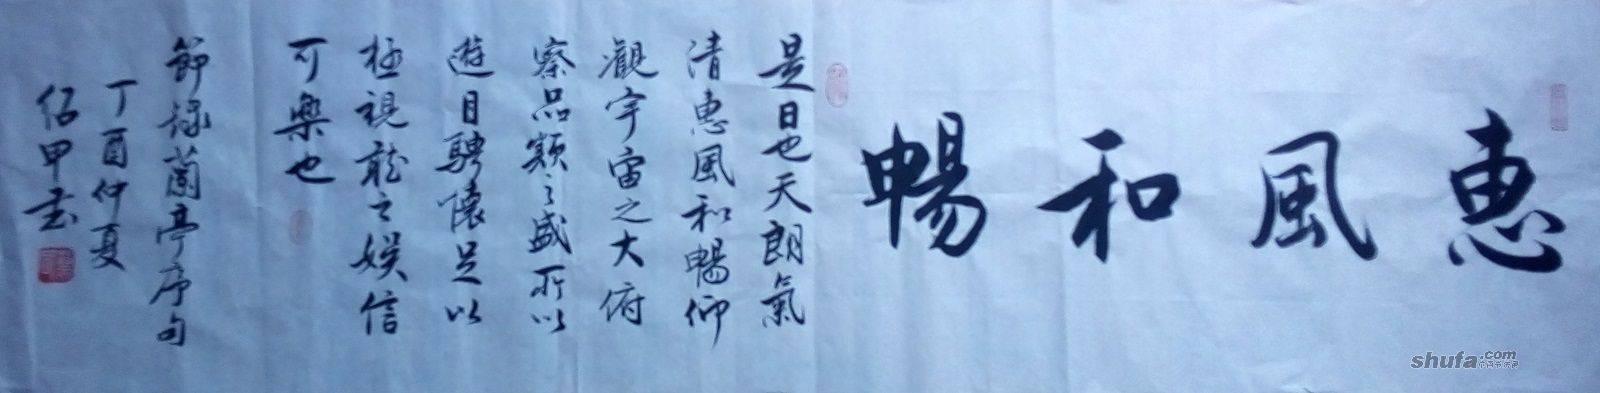 惠風和暢
是日也天朗氣
清惠風和暢仰
觀宇宙之大俯
察品類之盛所以
遊目騁懷足以
極視聽之娛信
可樂也
節録蘭亭序句
丁酉仲夏
伯甲书
shufa.com